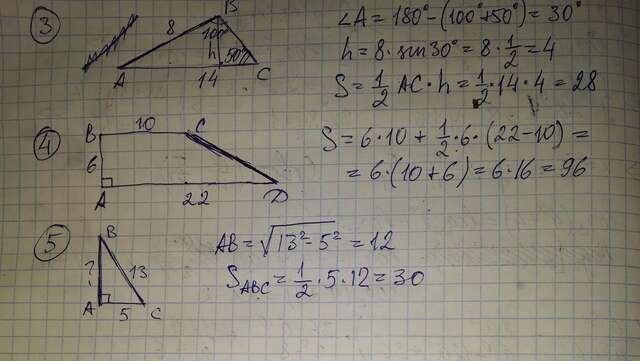 3
B
8
100°
h
50°
A
14
C
∠A = 180° - (100° + 50°) = 30°
h = 8 · sin 30° = 8 · 1/2 = 4
S = 1/2 AC · h = 1/2 · 14 · 4 = 28
4
B
10
C
6
A
22
D
S = 6 · 10 + 1/2 · 6 · (22 - 10) =
= 6 · (10 + 6) = 6 · 16 = 96
5
B
?
13
A
5
C
AB = √13² - 5² = 12
S ABC = 1/2 · 5 · 12 = 30